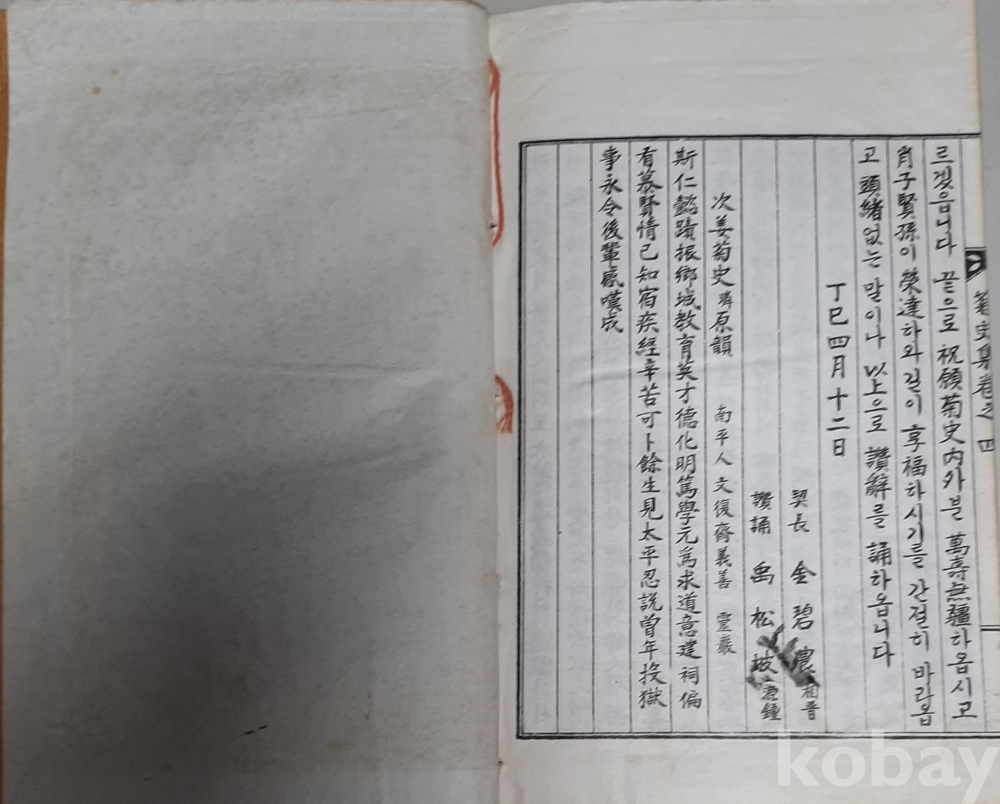 菊史集卷之四
르겟읍니다 끝으로 祝願菊史内外분 萬壽無疆하옵시고
肖子賢孫이 榮達하와 길이 享福하시기를 간절히 바라옵
고 頭緖없는 말이나 以上으로 讚辭를 誦하옵니다
丁巳四月十二日
契長 金碧農 相晋
讚誦 禹松坡 源鍾
次姜菊史 原韻 南平人 文復齋義善 靈巖
斯仁懿蹟振鄉城教育英才德化明篤學元爲求道意建祠偏
有慕賢情已知宿疾經辛苦可卜餘生見太平忍説曽年投獄
事永令後輩感嘆成
kobay